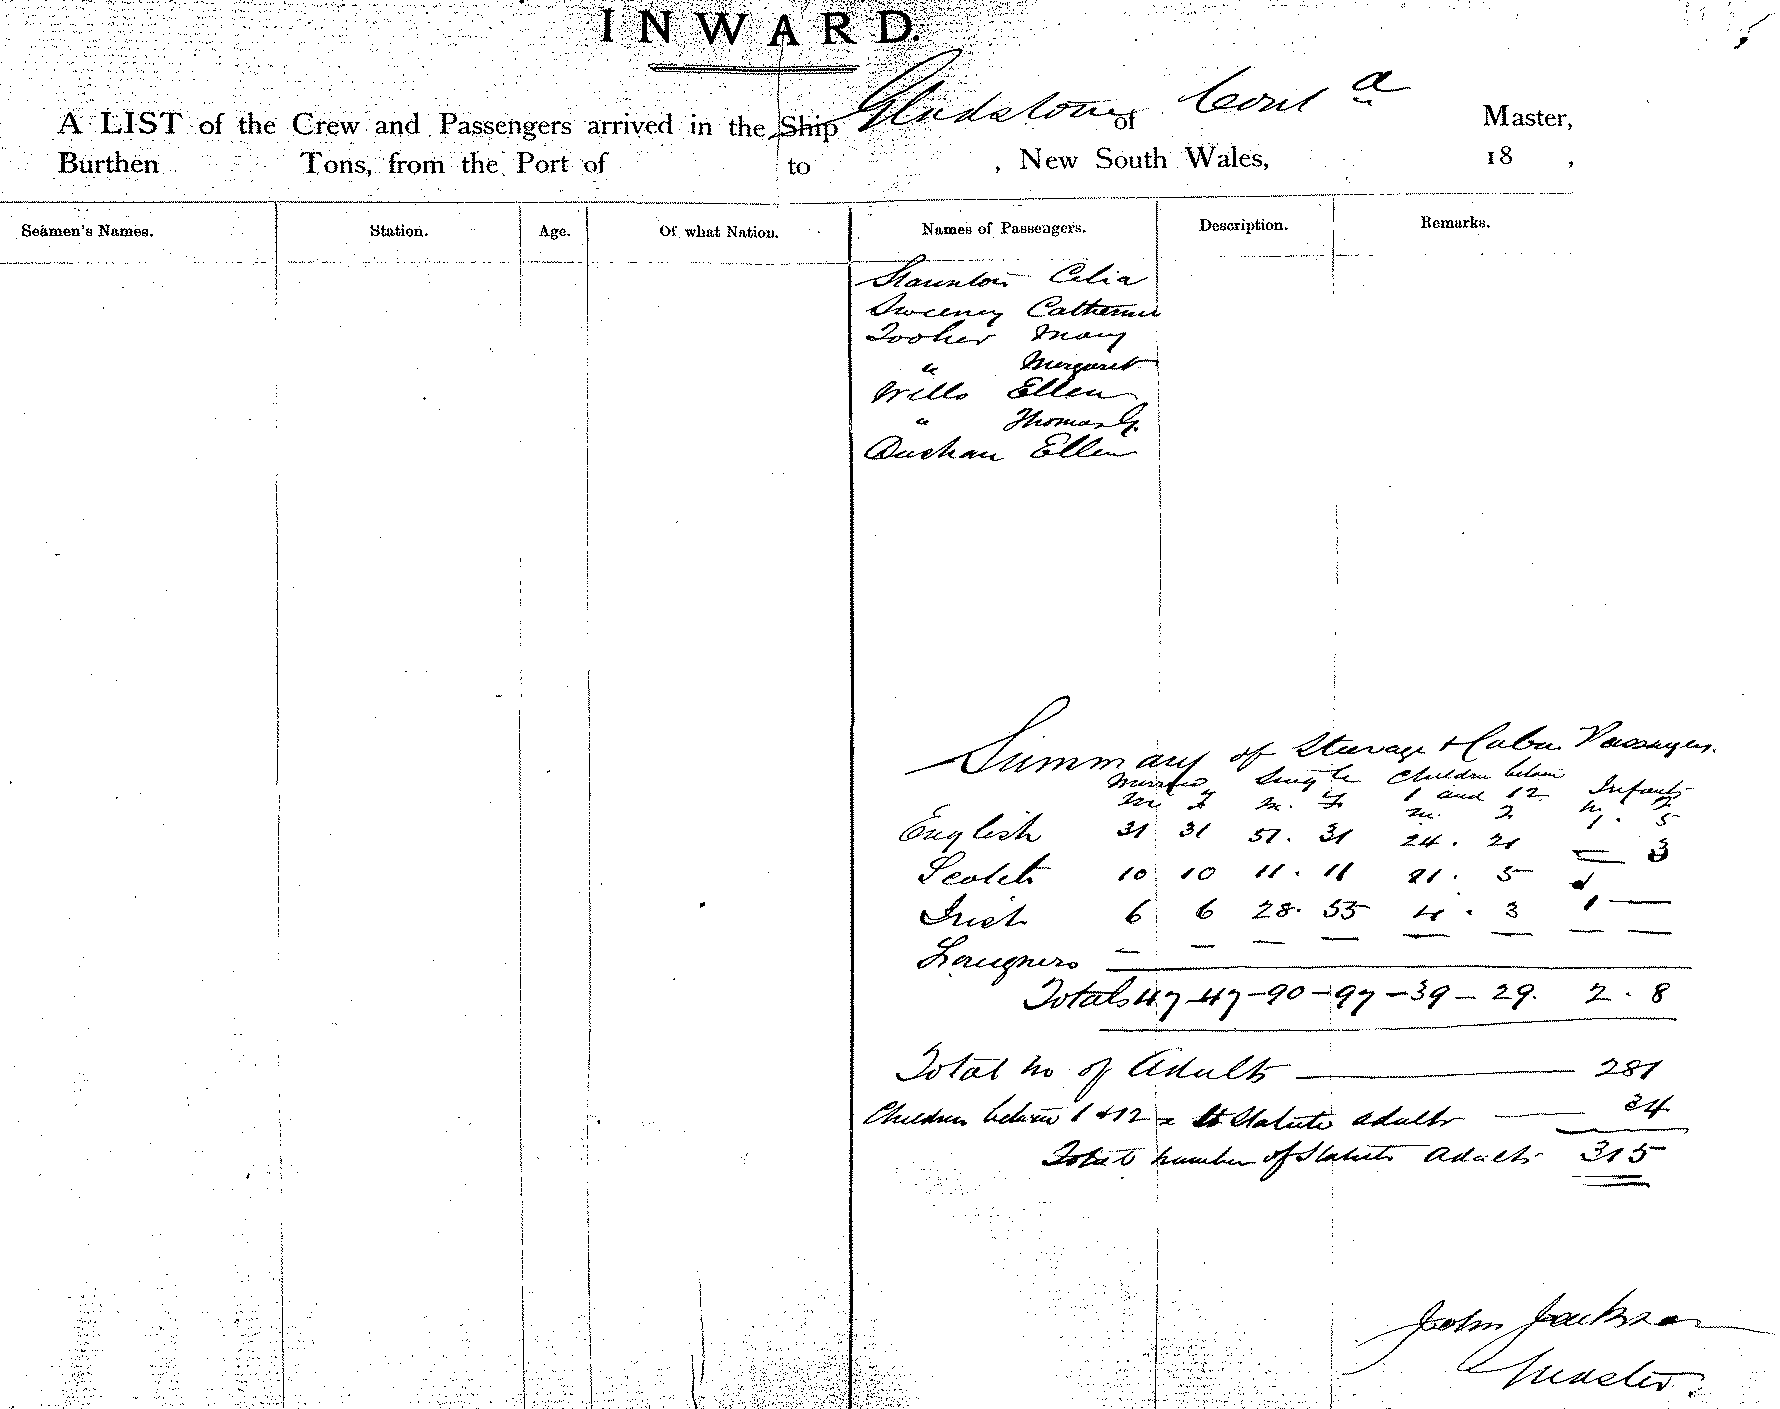 INWARD.
A LIST of the Crew and Passengers arrived in the Ship Gladstone of Cont d Master,
Burthen Tons, from the Port of to , New South Wales, 18 ,
Seamen's Names. Station. Age. Of what Nation. Names of Passengers. Description. Remarks.
Staunton Celia
Sweeney Catherine
Tooher Mary
" Margaret
Wills Ellen
" Thomas G.
Ellen
Summary of Steerage & Cabin Passengers.
Married Single Children between Infants
1 and 12
M. F M. F. M. F. M. F
English 31 31 51. 31 24. 21 1. 5
Scotch 10 10 11. 11 11. 5 — 3
Irish 6 6 28. 55 4. 3 1 —
Foreigners — — — — — — — —
Totals 47 - 47 - 90 - 97 - 39 - 29. 2. 8
Total No of Adults — 281
Children between 1 & 12 = to Statute adults — 34
Total number of Statute Adults 315
John Jackson
Master.